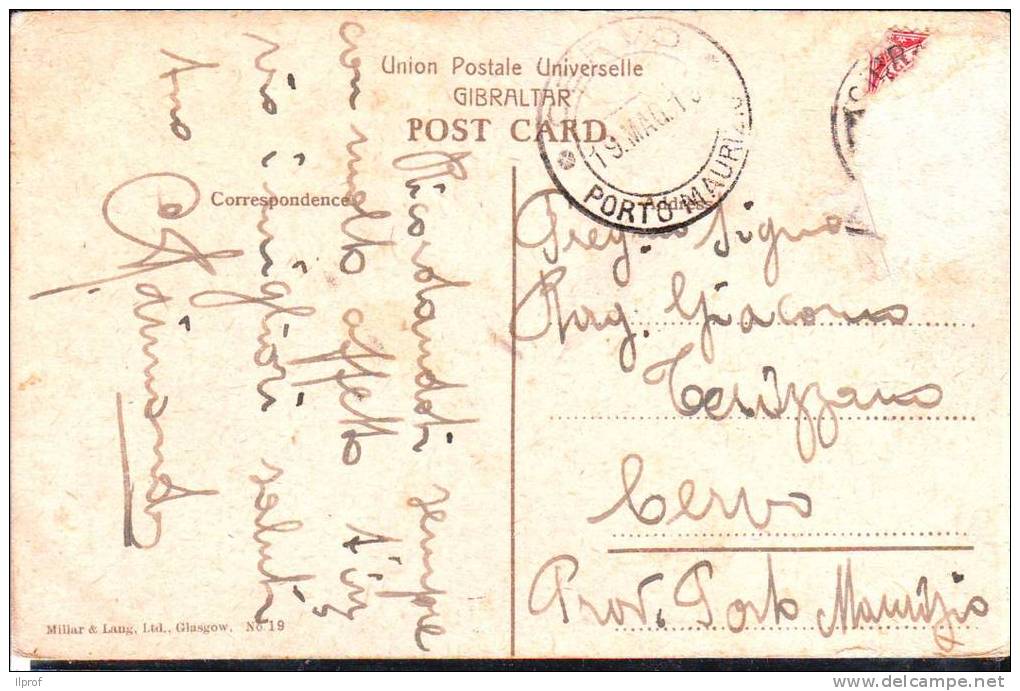 Union Postale Universelle
GIBRALTAR
POST CARD.
Correspondence
Address
Ricordandoti sempre
con molto affetto t'in
vio i migliori saluti
tuo
Raimondo
CERVO
19.MAG.1
PORTO MAURI
Preg.mo Signor
Rag. Giacomo
Terizzano
Cervo
Prov. Porto Maurizio
Millar & Lang, Ltd., Glasgow, No. 19
Ilprof
delcampe.net